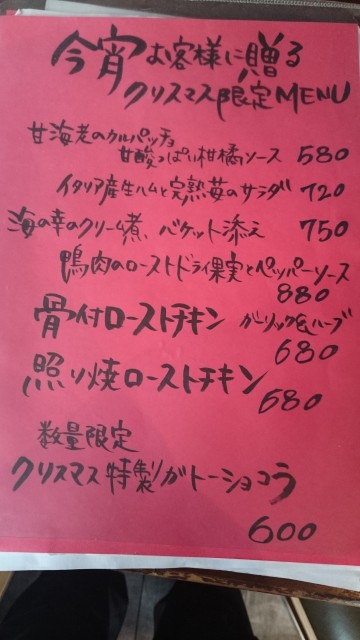 今宵お客様に贈る
クリスマス限定MENU
甘海老のカルパッチョ
甘酸っぱい柑橘ソース 580
イタリア産生ハムと完熟苺のサラダ 720
海の幸のクリーム煮、バケット添え 750
鴨肉のローストドライ果実とペッパーソース
880
骨付ローストチキン ガーリック&ハーブ
680
照り焼ローストチキン
680
数量限定
クリスマス特製ガトーショコラ
600